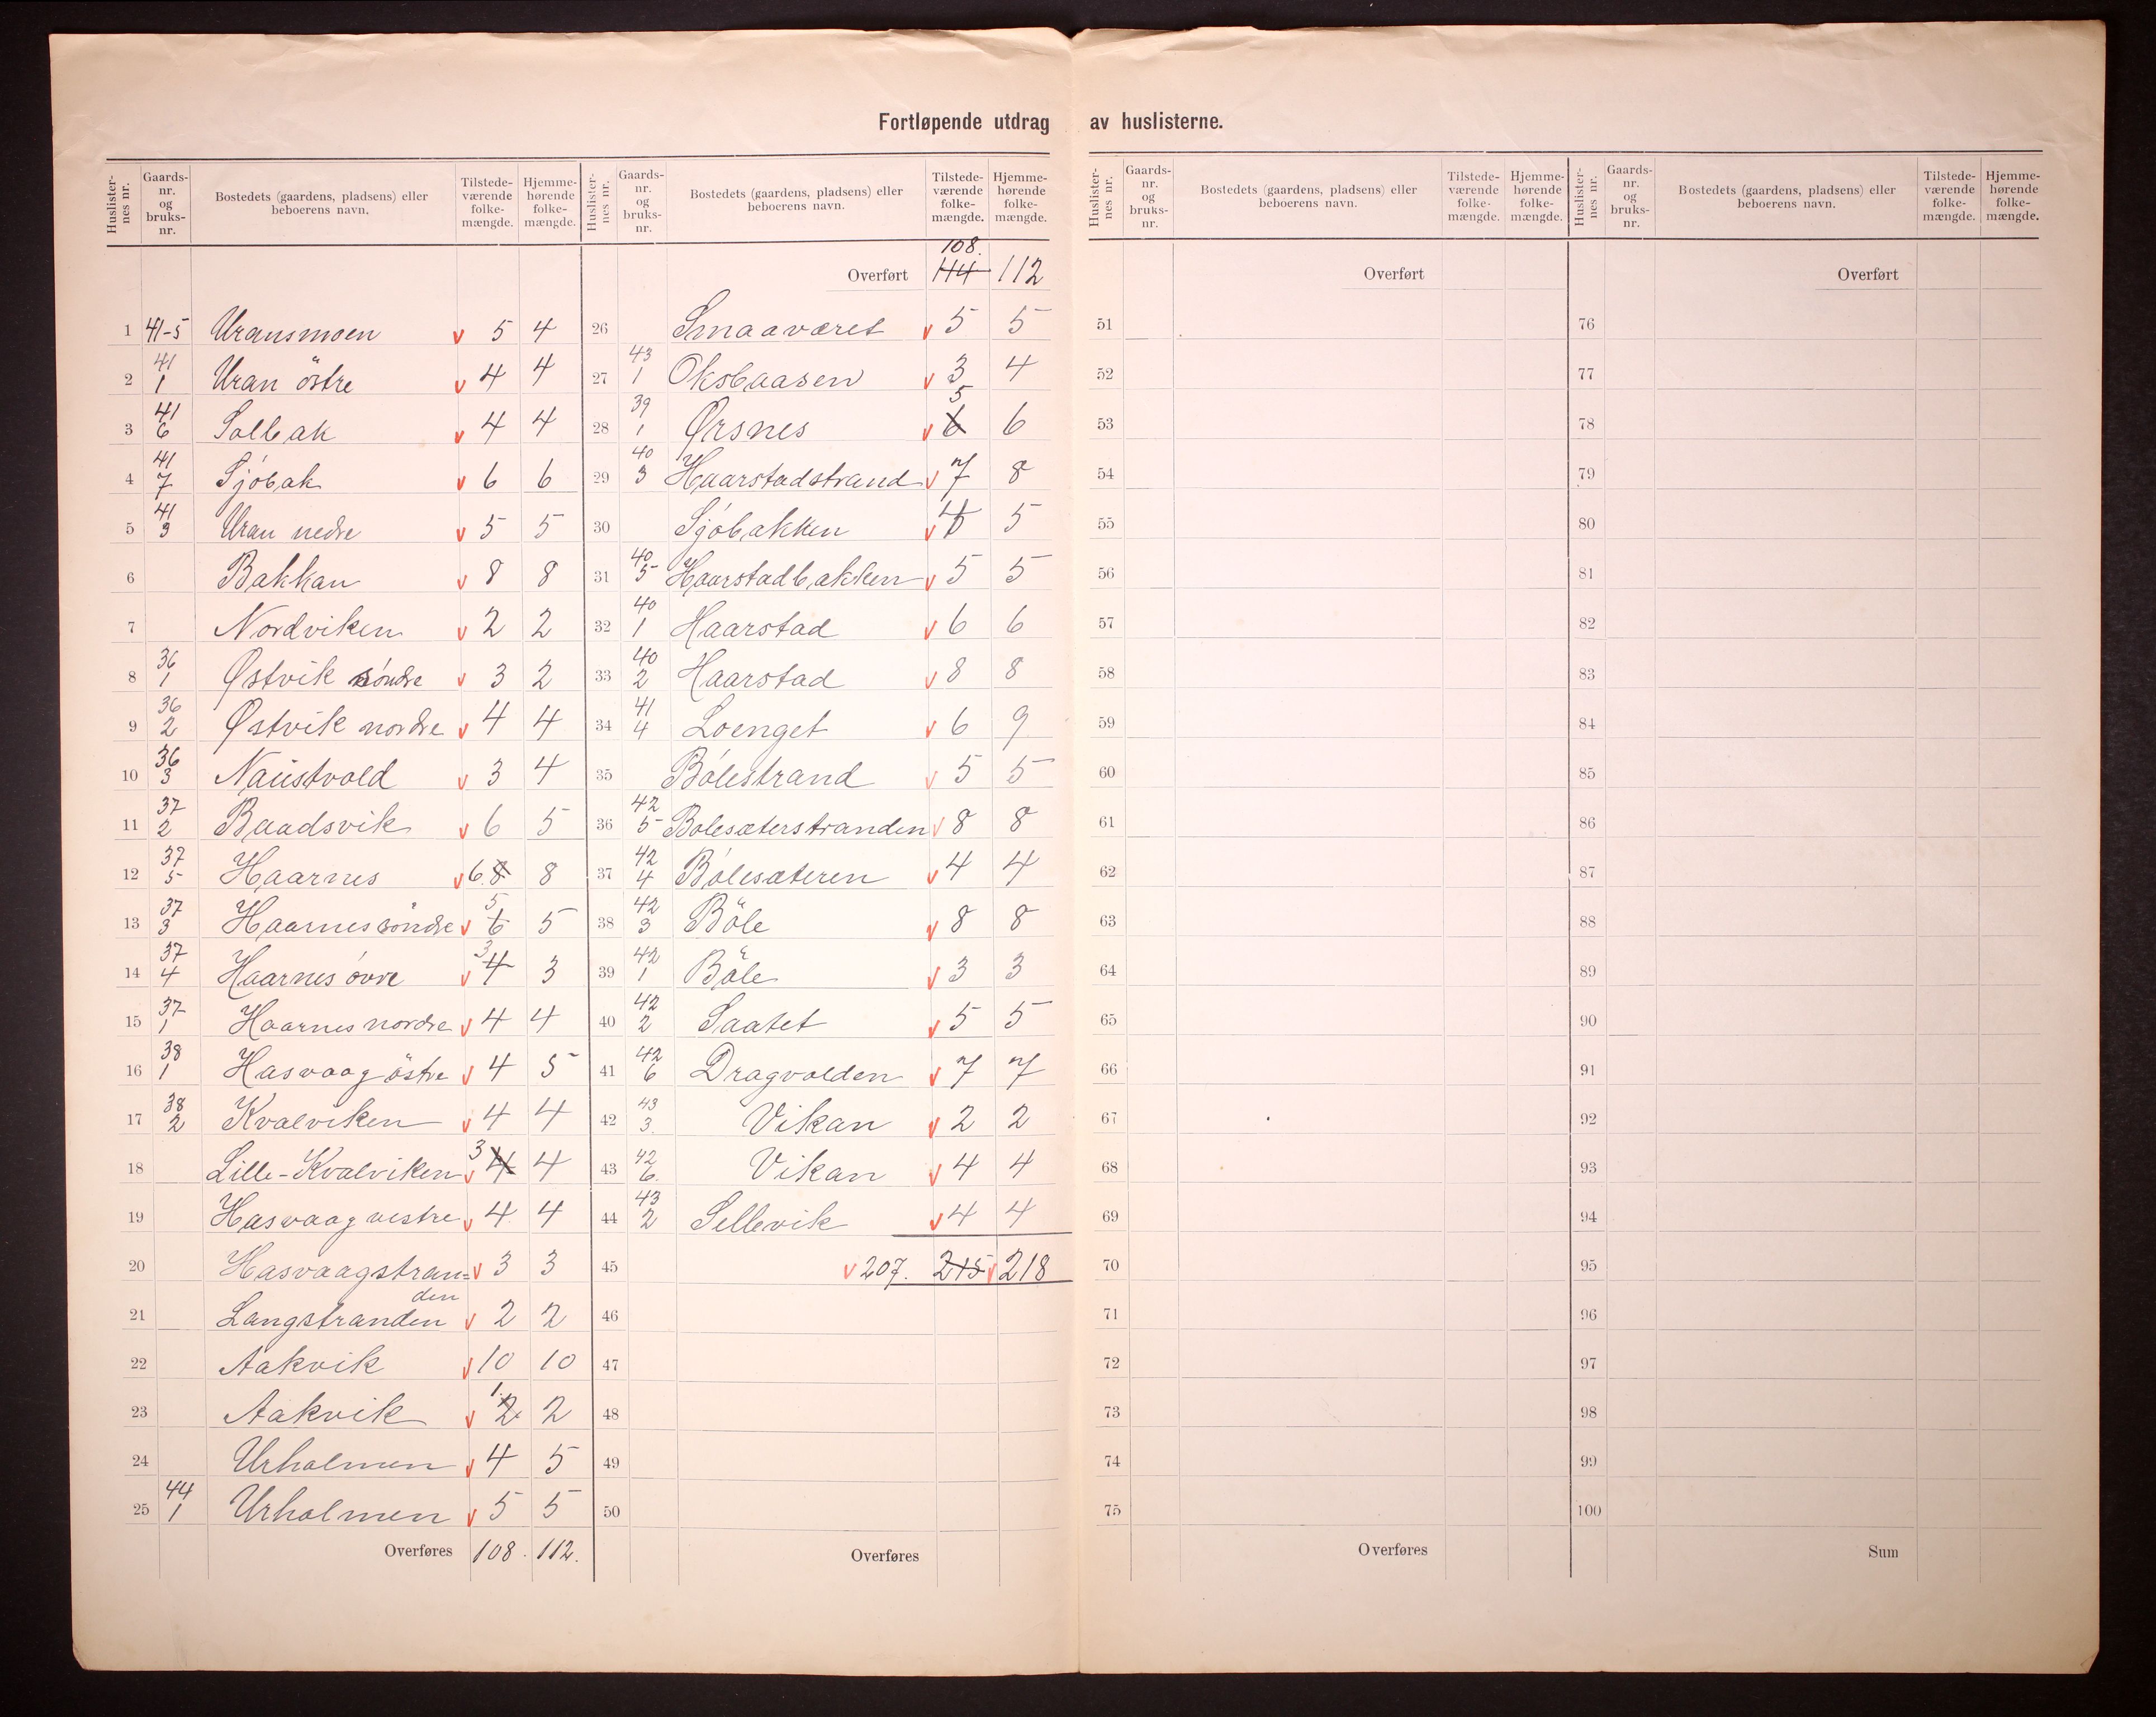 Fortløpende utdrag av huslisterne.
Huslisternes nr. Gaardsnr. og bruksnr. Bostedets (gaardens, pladsens) eller beboerens navn. Tilstedeværende folkemængde. Hjemmehørende folkemængde.
1 41-5 Uransmoen v 5 4
2 41 1 Uran östre v 4 4
3 41 6 Solbak v 4 4
4 41 7 Sjöbak v 6 6
5 41 3 Uran nedre v 5 5
6 Bakkan v 8 8
7 Nordviken v 2 2
8 36 1 Østvik söndre v 3 2
9 36 2 Østvik nordre v 4 4
10 36 3 Naustvold v 3 4
11 37 2 Baadsvik v 6 5
12 37 5 Haarnes v 6. 8 8
13 37 3 Haarnes söndre v 5 6 5
14 37 4 Haarnes övre v 3 4 3
15 37 1 Haarnes nordre v 4 4
16 38 1 Hasvaag östre v 4 5
17 38 2 Kvalviken v 4 4
18 Lille-Kvalviken v 3 4 4
19 Hasvaag vestre v 4 4
20 Hasvaagstran= v 3 3
den
21 Langstranden v 2 2
22 Aakvik v 10 10
23 Aakvik v 1. 2 2
24 Urholmen v 4 5
25 44 1 Urholmen v 5 5
Overføres 108. 112.
Huslisternes nr. Gaardsnr. og bruksnr. Bostedets (gaardens, pladsens) eller beboerens navn. Tilstedeværende folkemængde. Hjemmehørende folkemængde.
108.
Overført 114 112
26 Smaaværet v 5 5
27 43 1 Oksbaasen v 3 4
28 39 1 Ørsnes v 5 6 6
29 40 3 Haarstadstrand v 7 8
30 Sjöbakken v 5
31 40 5 Haarstadbakken v 5 5
32 40 1 Haarstad v 6 6
33 40 2 Haarstad v 8 8
34 41 4 Loenget v 6 9
35 Bölestrand v 5 5
36 42 5 Bolesæterstranden v 8 8
37 42 4 Bölesæteren v 4 4
38 42 3 Böle v 8 8
39 42 1 Böle v 3 3
40 42 2 Saatet v 5 5
41 42 6 Dragvolden v 7 7
42 43 3. Vikan v 2 2
43 42 6. Vikan v 4 4
44 43 2 Sellevik v 4 4
45 v 207. 215 v 218
46
47
48
49
50
Overføres
Huslisternes nr. Gaardsnr. og bruksnr. Bostedets (gaardens, pladsens) eller beboerens navn. Tilstedeværende folkemængde. Hjemmehørende folkemængde.
Overført
51
52
53
54
55
56
57
58
59
60
61
62
63
64
65
66
67
68
69
70
71
72
73
74
75
Overføres
Huslisternes nr. Gaardsnr. og bruksnr. Bostedets (gaardens, pladsens) eller beboerens navn. Tilstedeværende folkemængde. Hjemmehørende folkemængde.
Overført
76
77
78
79
80
81
82
83
84
85
86
87
88
89
90
91
92
93
94
95
96
97
98
99
100
Sum